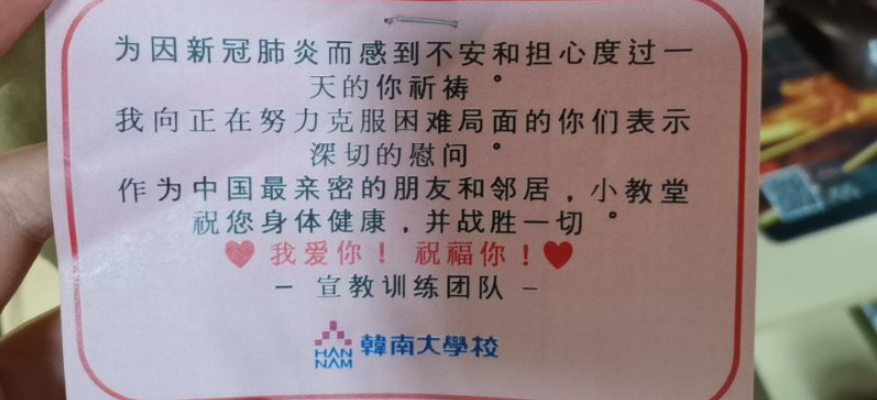 为因新冠肺炎而感到不安和担心度过一
天的你祈祷。
我向正在努力克服困难局面的你们表示
深切的慰问。
作为中国最亲密的朋友和邻居，小教堂
祝您身体健康，并战胜一切。
我爱你！祝福你！
– 宣教训练团队 –
HAN
NAM
韓南大學校